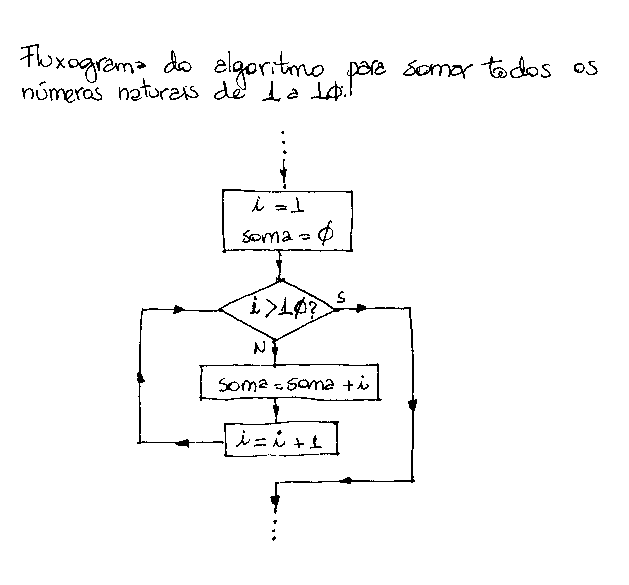 Fluxograma do algoritmo para somar todos os
números naturais de 1 a 10.
i = 1
soma = 0
i > 10?
S
N
soma = soma + i
i = i + 1